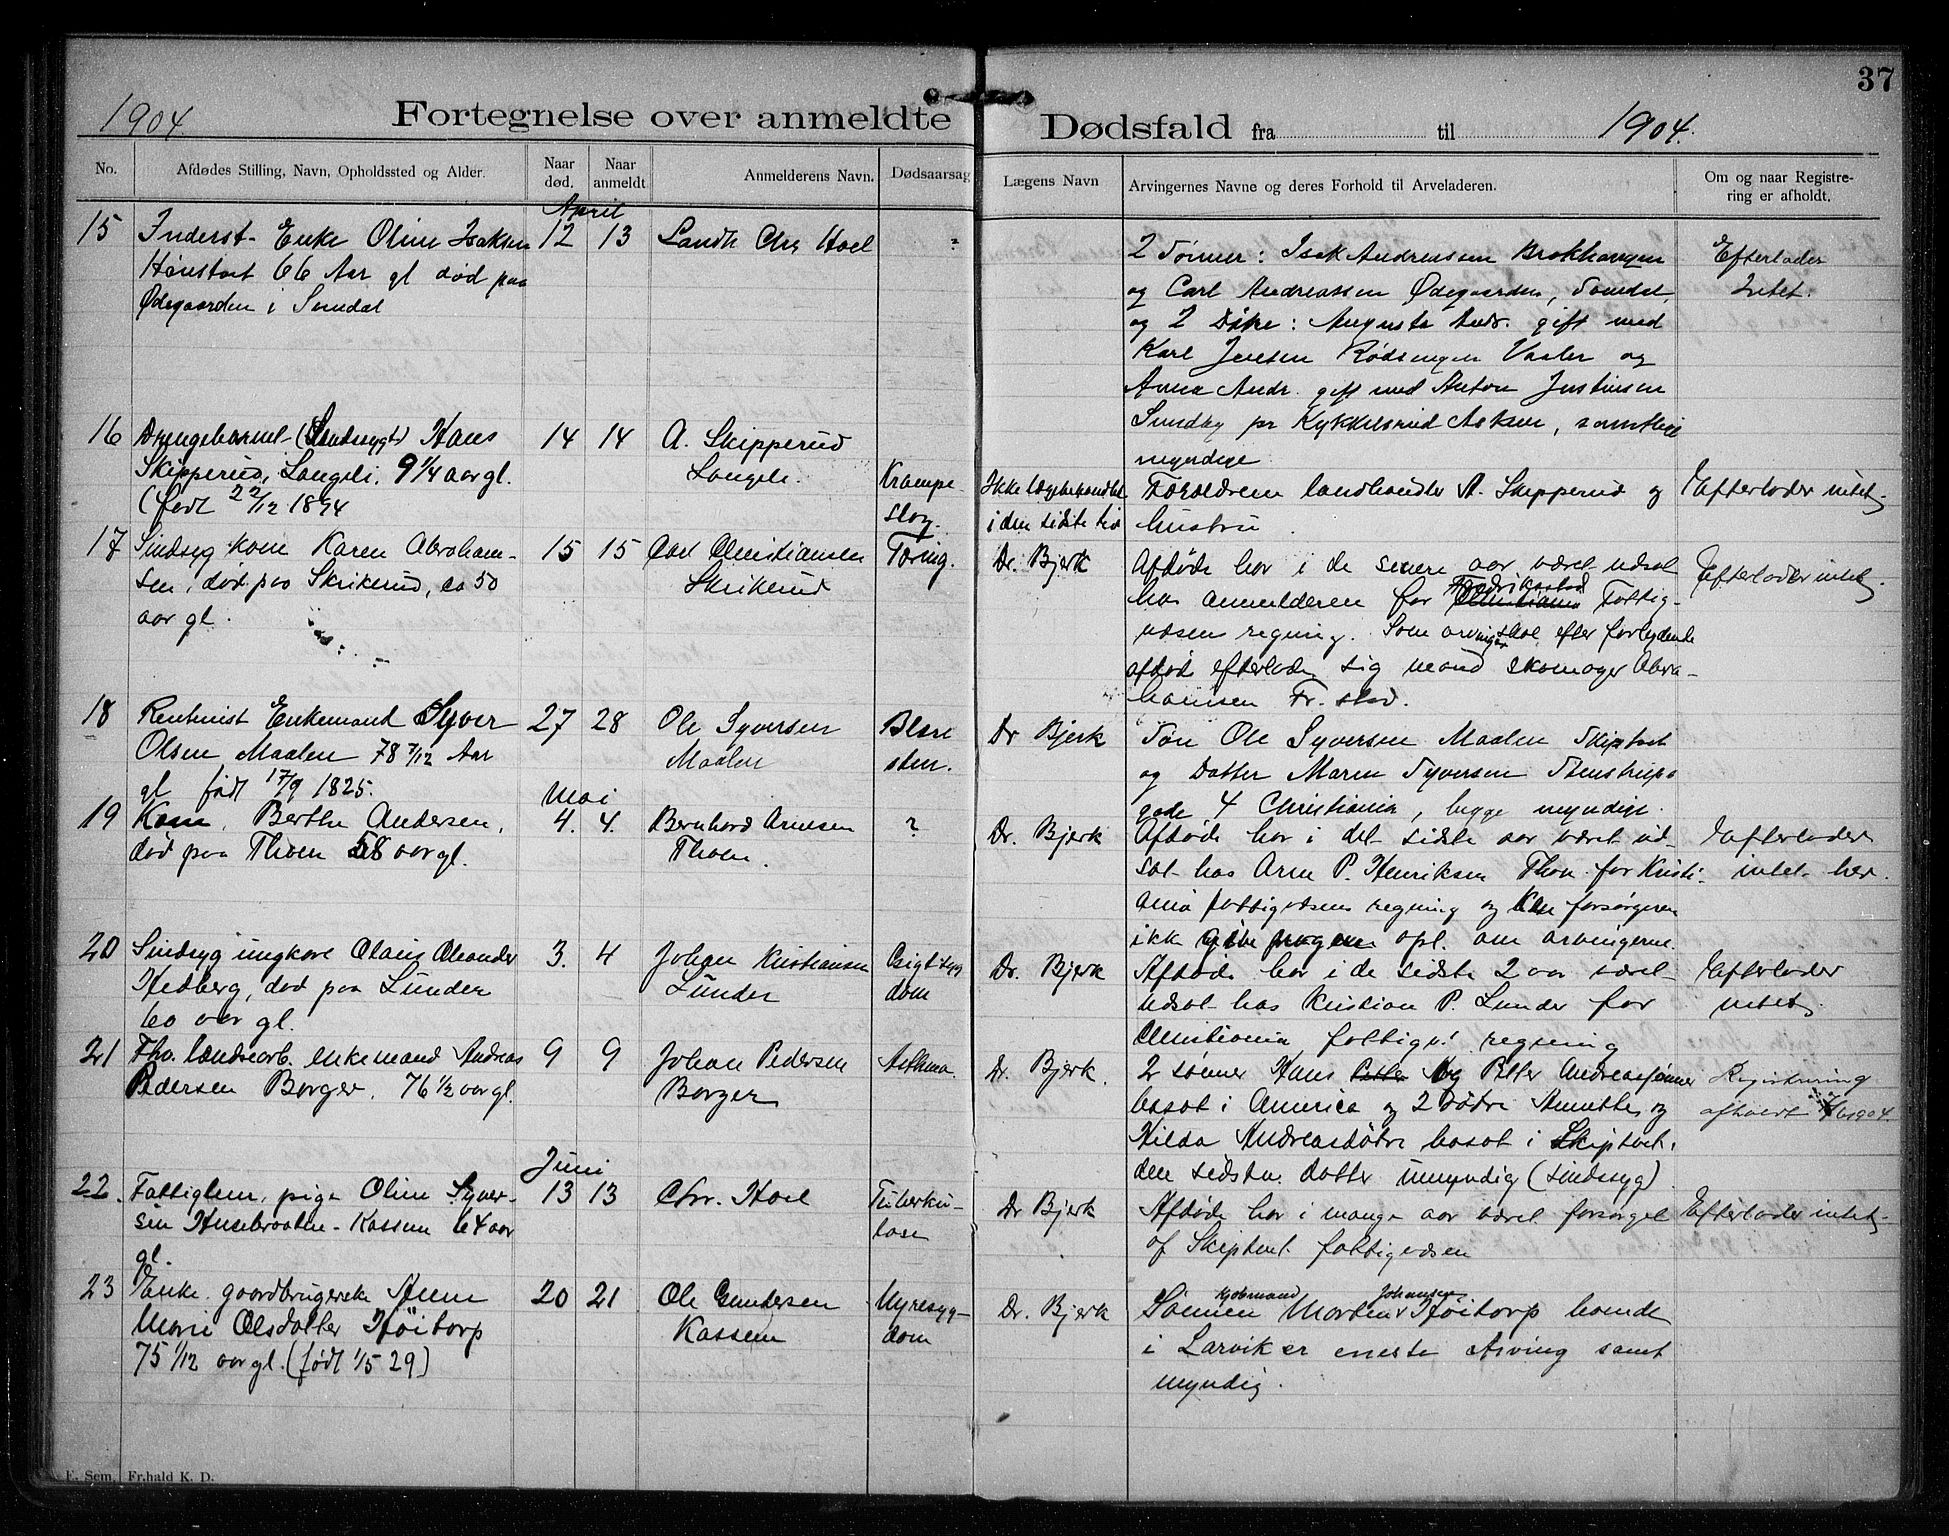 37
1904.
Fortegnelse over anmeldte Dødsfald fra til 1904.
No.
Afdødes Stilling, Navn, Opholdssted og Alder.
Naar død.
Naar anmeldt
Anmelderens Navn.
Dødsaarsag
Lægens Navn
Arvingernes Navne og deres Forhold til Arveladeren.
Om og naar Registrering er afholdt.
April
15 Inderst- Enke Oline Isaksen 12 13 Landh Chrs Hoel ?
66 Aar gl død paa
Ødegaarden i Somdal
2 Sønner: Isak Andreassen
og Carl Andreassen Ødegaarden, Somdal,
og 2 Døtre: Augusta Andr. gift med
Karl Jensen Rødsengen Vaaler og
Anna Andr. gift med Anton Justinsen
Sundby pr Kykkelsrud Askim, samtlige
myndige
Efterlader
Intet.
16 Drengebarnet (Sindssygt) Hans 14 14 A. Skipperud
Skipperud, Langeli. 9 1/4 aar gl.
(født 22/12 1894
Langeli.
Krampe-
slag.
Ikke lægebehandlet
i den sidste tid
Forældrene landhandler A. Skipperud og
hustru.
Efterlader intet.
17 Sindsyg kone Karen Abraham- 15 15 Carl Christiansen Tæring.
sen, død paa Skrikerud, ca 50
aar gl.
Skrikerud
Dr. Bjerk
Afdøde har i de senere aar været udsat
hos anmelderen for Fredrikstad Christiania Fattig-
væsen regning. Som arvinger skal efter forlydende
afdød efterlade sig mand skomager Abra-
hamsen Fr. stad.
Efterlader intet.
18 Rentenist Enkemand Syver 27 28 Ole Syversen Blære
Olsen Maalen 78 7/12 Aar
gl født 17/9 1825.
Maalen
sten.
Dr Bjerk
Søn Ole Syversen Maalen Skiptvet
og Datter Maren Syversen Stenstrups
gade 4 Christiania, begge myndige.
Mai
19 Kone. Berthe Andersen, 4. 4. Bernhard Arnesen ?
død paa Thoen 58 aar gl.
Thoen.
Dr. Bjerk
Afdøde har i det sidste aar været ud-
sat hos Arne P. Henriksen Thon for Kristi-
ania fattigvæsens regning og kan forsørgeren
ikke give nogen opl. om arvingerne.
Efterlader
intet her.
20 Sindsyg ungkarl Olaus Oleander 3. 4 Johan Kristiansen Gigtsyg
Hedberg, død paa Lunder
60 aar gl.
Lunder
dom
Dr. Bjerk
Afdøde har i de sidste 2 aar været
udsat hos Kristian P. Lunder for
Christiania fattigv. regning
Efterlader
intet.
21 Fhv. enkemand Andreas 9 9 Johan Pedersen Asthma.
Pedersen Borger. 76 1/2 aar gl.
Borger
Dr. Bjerk.
2 sønner Hans Petter og Petter Andreassønner
bosat i America og 2 døtre Annette og
Hilda Andreasdøtre bosat i Skiptvet.
den sidstn. datter umyndig (sindssyg)
Registrering
afholdt 1904.
Juni
22. Fattiglem, pige Oline Syver- 13 13 Chr. Hoel Tuberku-
sen Husebraaten - Kassem 64 aar
gl.
lose
Dr Bjerk
Afdøde har i mange aar været forsørget
af Skiptvet fattigvæsen
Efterlader intet.
23 Enke. gaardbrugerske Anne 20 21 Ole Gundersen Nyresyg-
Marie Olsdatter Høitorp
75 1/12 aar gl. (født 1/5 29)
Kassem
dom
Dr. Bjerk
kjøbmand Johansen
Sønnen Morten Høitorp boende
i Larvik er eneste Arving samt
myndig.
F. Sem, Fr.hald K. D.